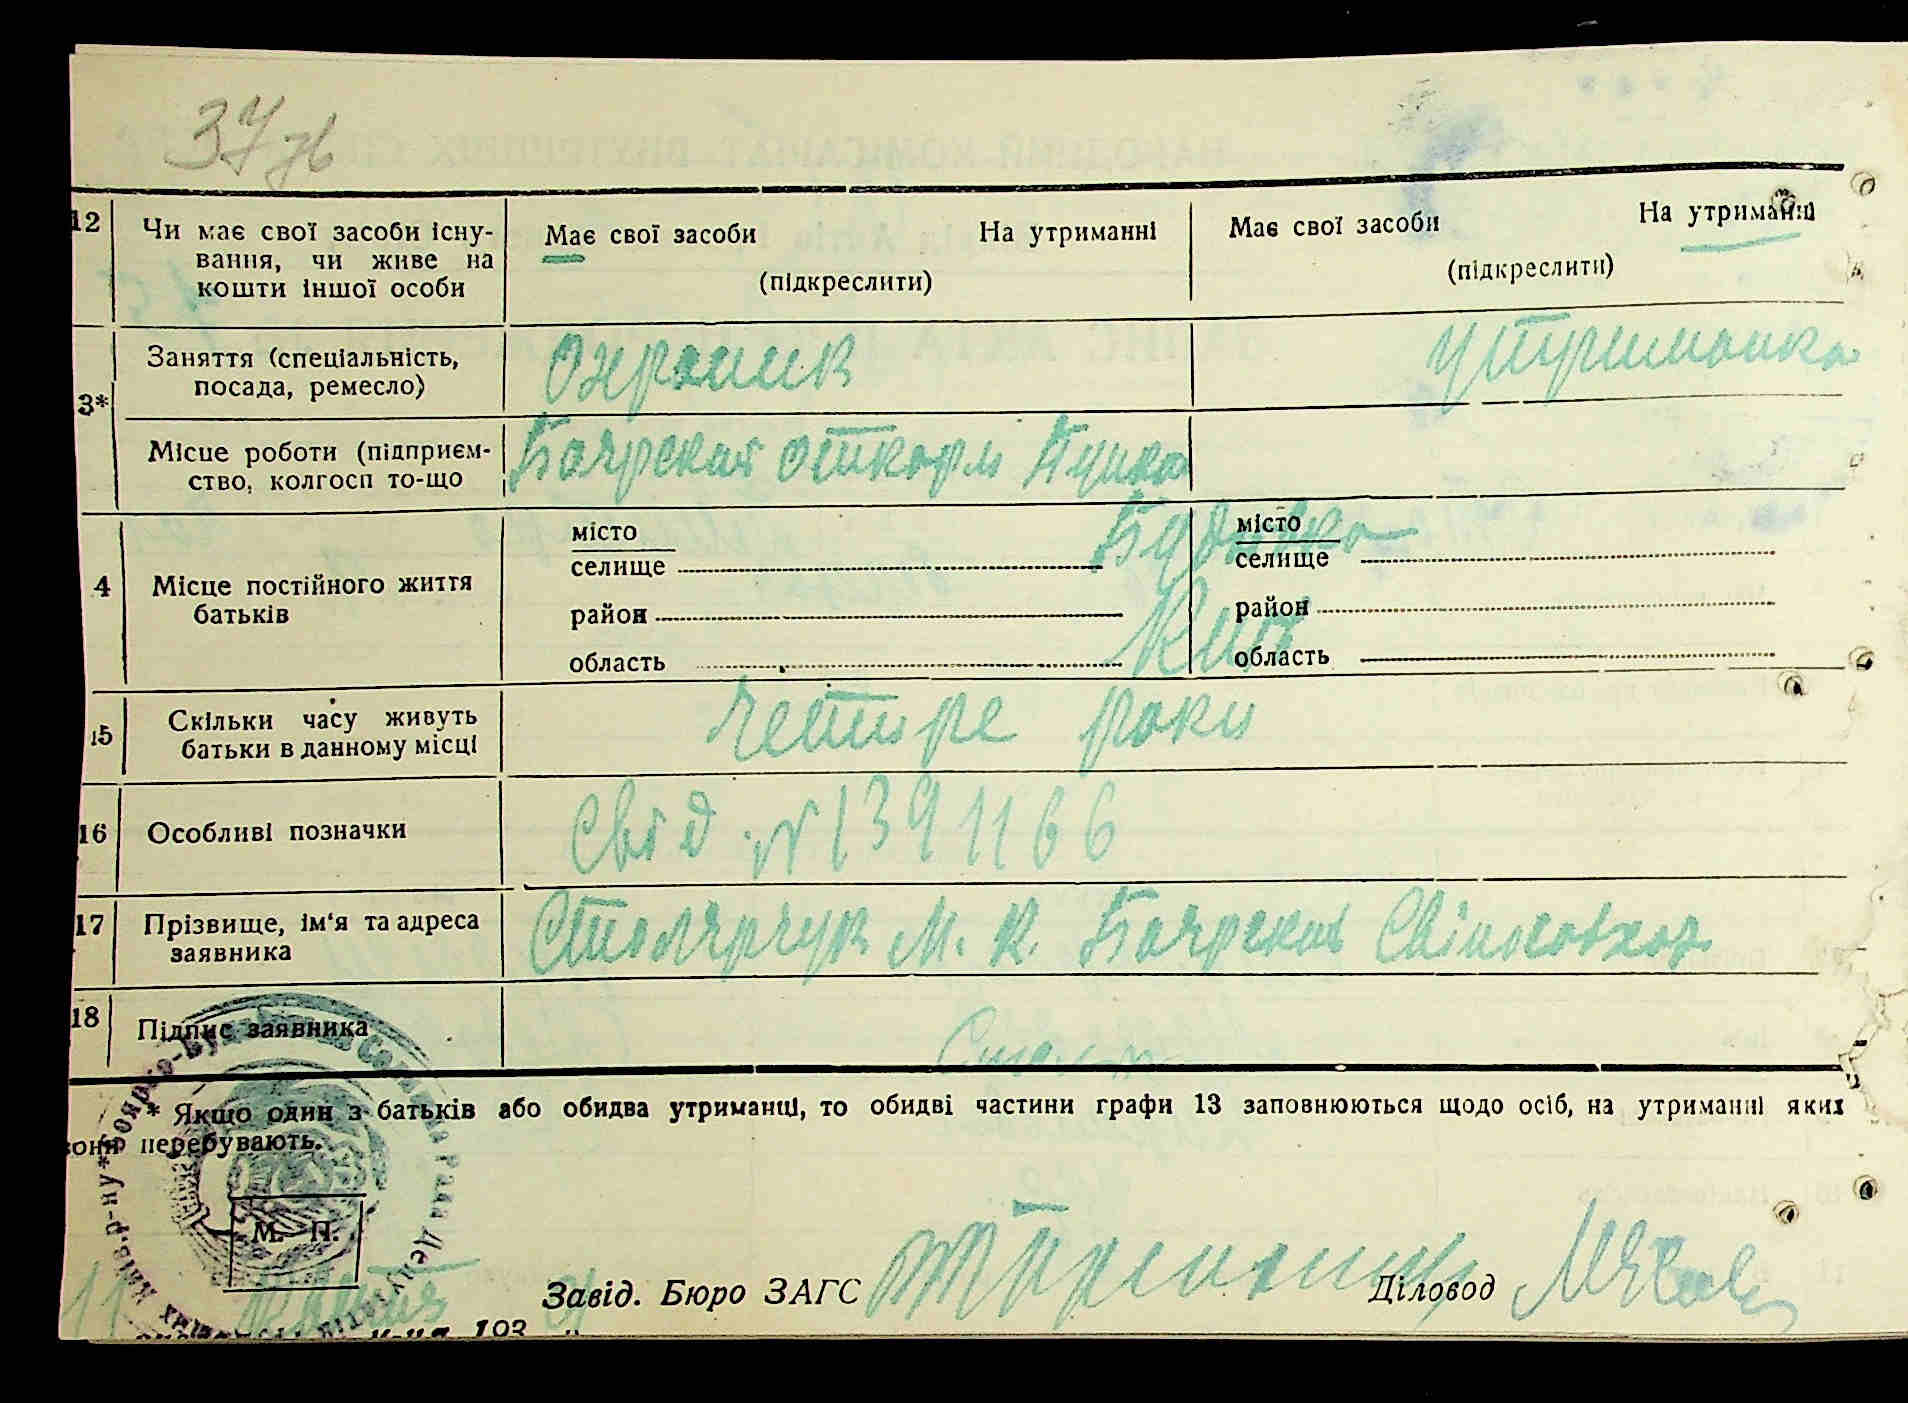 37 зв
12 Чи має свої засоби існу- Має свої засоби На утриманні Має свої засоби На утриманні
вання, чи живе на (підкреслити) (підкреслити)
кошти іншої особи
3* Заняття (спеціальність, Охранник утриманка
посада, ремесло)
Місце роботи (підприєм- Боярская откорм Пунка
ство, колгосп то-що
4 Місце постійного життя батьків
місто місто
селище Будаєвка селище
район район
область Київ область
15 Скільки часу живуть четире роки
батьки в данному місці
16 Особливі позначки Свід. N 1391166
17 Прізвище, ім'я та адреса Столярчук М. К. Боярский Свіносовхоз
заявника
18 Підпис заявника
* Якщо один з батьків або обидва утриманці, то обидві частини графи 13 заповнюються щодо осіб, на утриманні яких
вони перебувають.
М. П.
Завід. Бюро ЗАГС Діловод
193